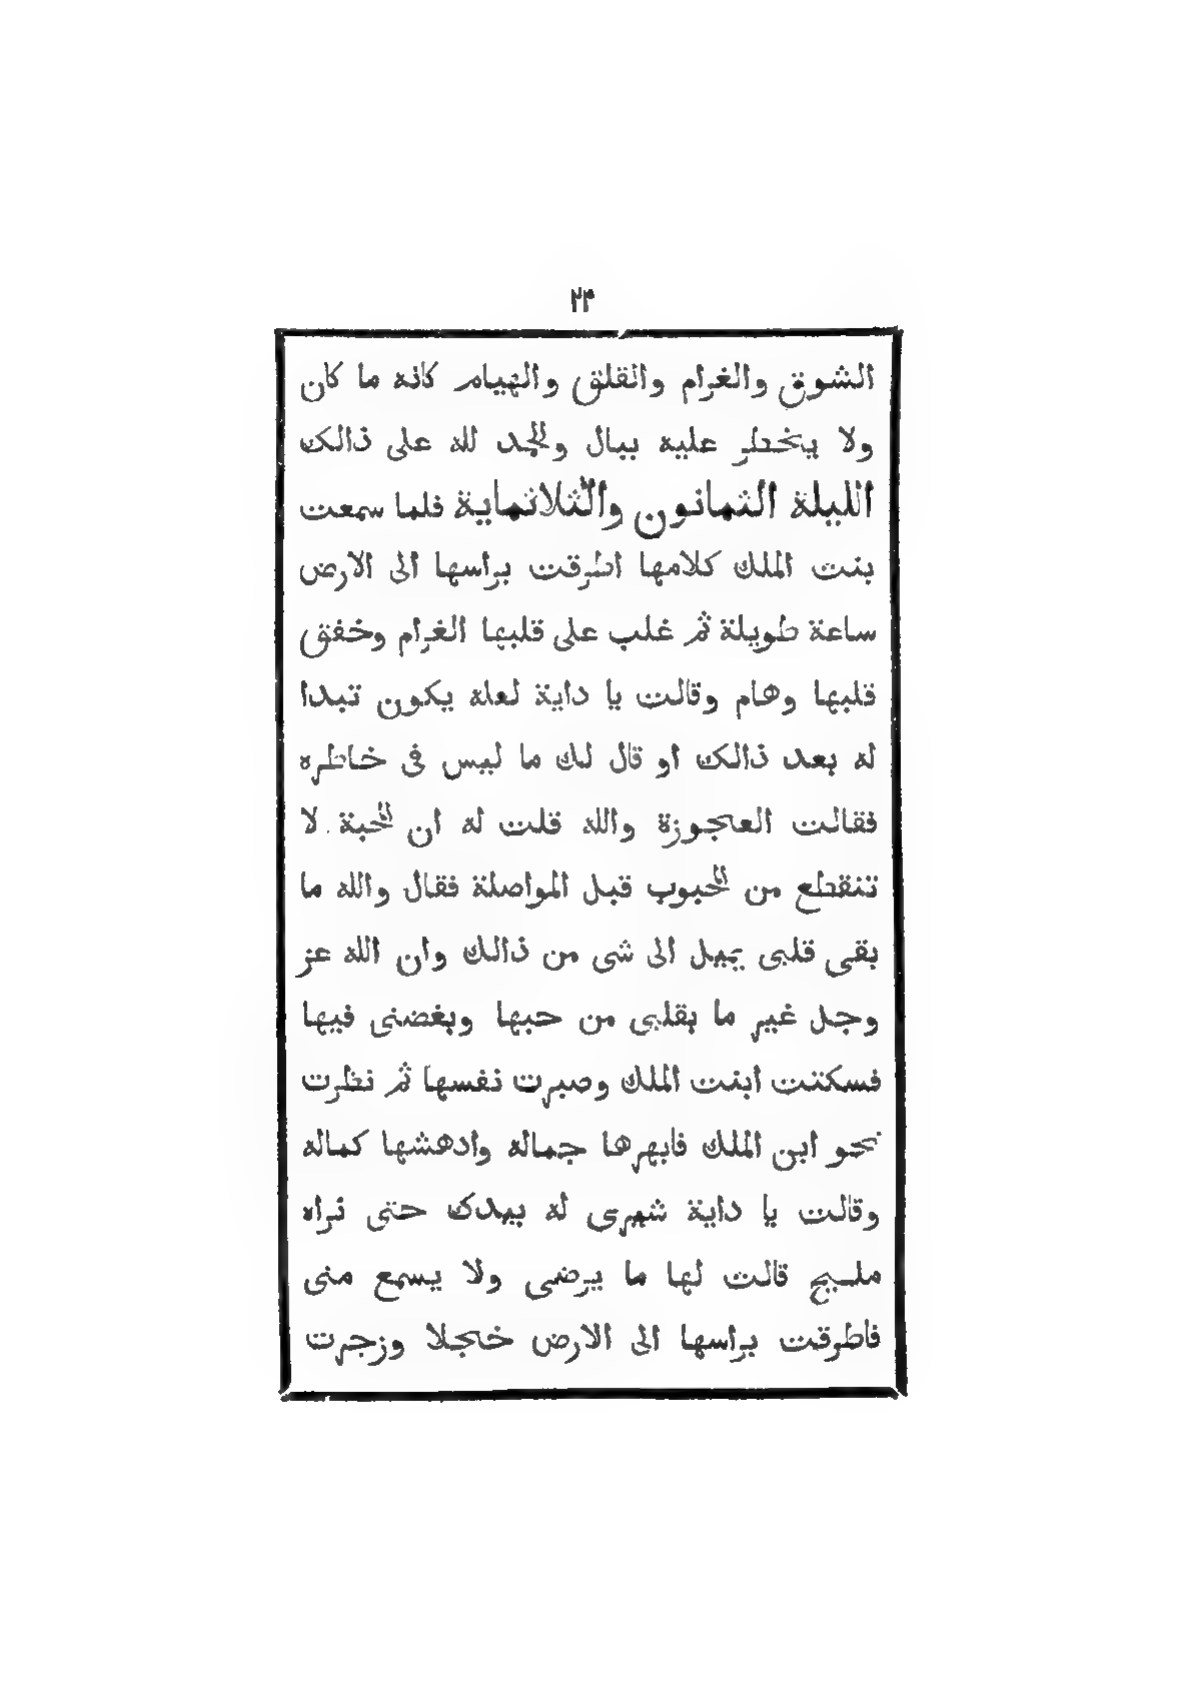 ٢٣
الشوق والغرام والقلق والهيام كانه ما كان
ولا يخطر عليه ببال والحمد لله على ذالك
الليلة الثمانون والثلاثماية فلما سمعت
بنت الملك كلامها اطرقت براسها الى الارض
ساعة طويلة ثم غلب على قلبها الغرام وخفق
قلبها وهام وقالت يا داية لعله يكون تبدا
له بعد ذالك او قال لك ما ليس فى خاطره
فقالت العجوزة والله قلت له ان المحبة لا
تنقطع من المحبوب قبل المواصلة فقال والله ما
بقى قلبى يميل الى شى من ذالك وان الله عز
وجل غير ما بقلبى من حبها وبغضنى فيها
فسكتت ابنت الملك وصبرت نفسها ثم نظرت
نحو ابن الملك فابهرها جماله وادهشها كماله
وقالت يا داية شهرى له بيدك حتى نراه
مليح قالت لها ما يرضى ولا يسمع منى
فاطرقت براسها الى الارض خجلا وزجرت